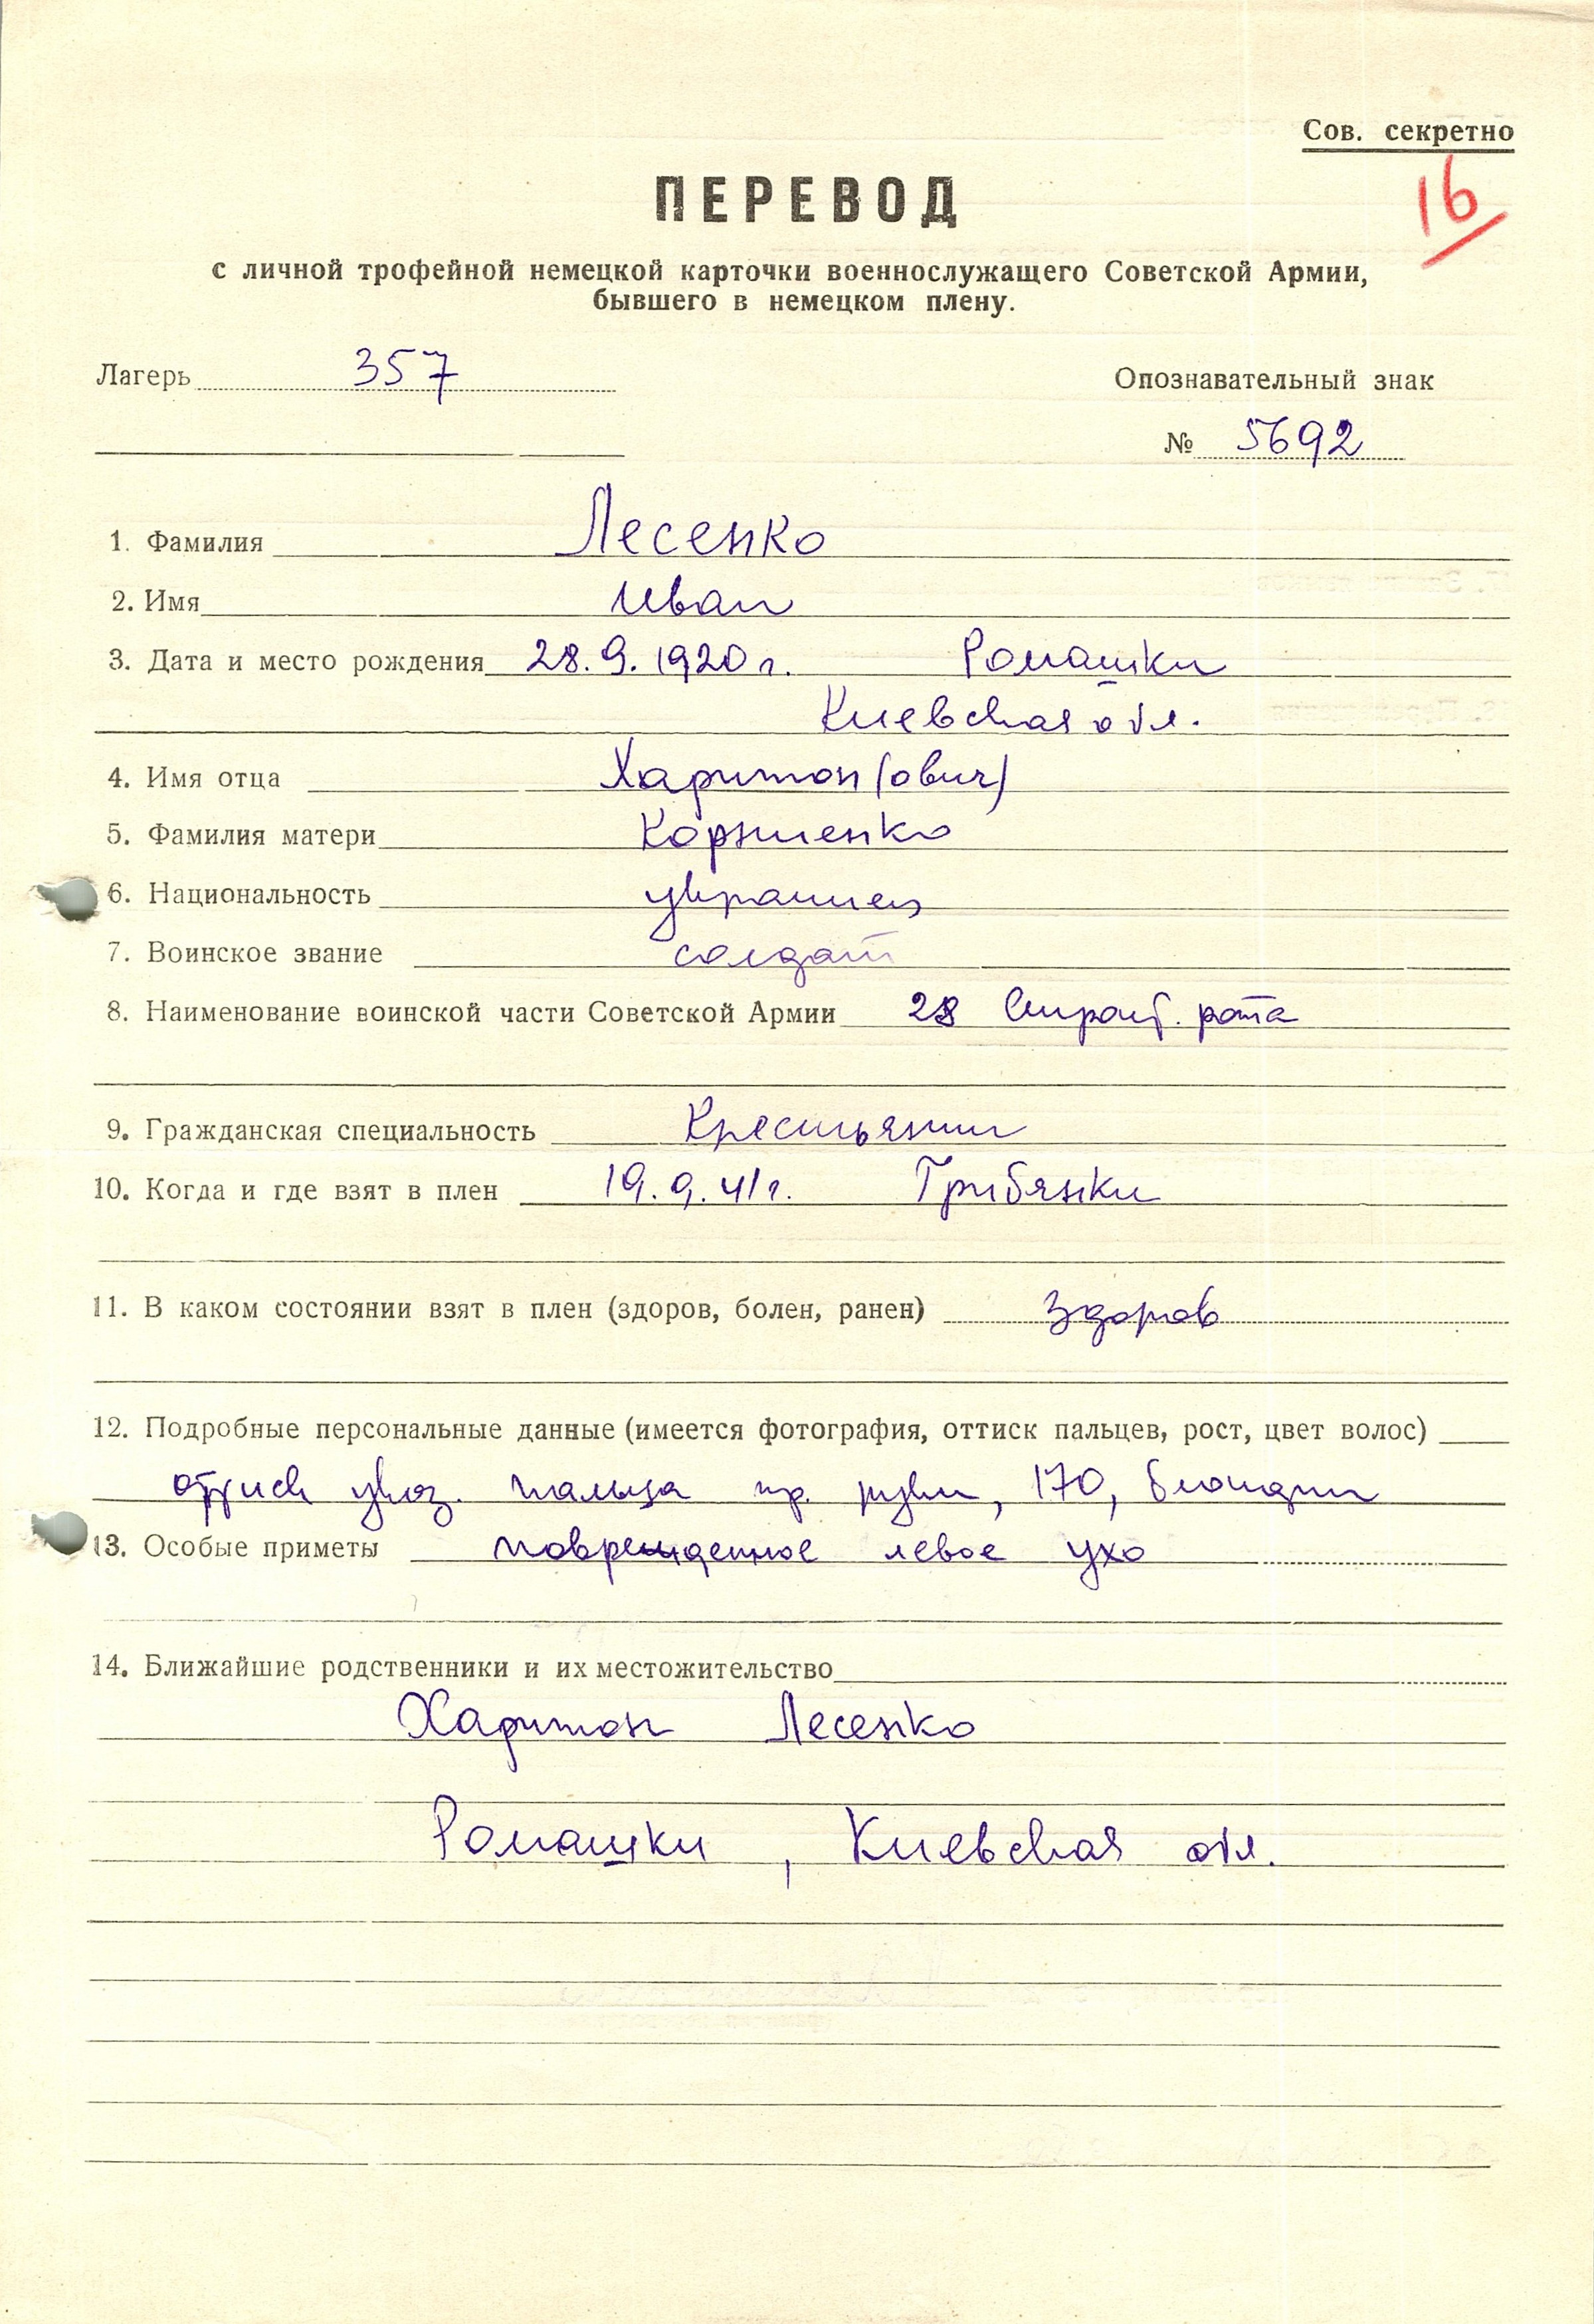 Сов. секретно
16
ПЕРЕВОД
с личной трофейной немецкой карточки военнослужащего Советской Армии,
бывшего в немецком плену.
Лагерь 357
Опознавательный знак
№ 5692
1. Фамилия Лесенко
2. Имя Иван
3. Дата и место рождения 28.9.1920 г. Ромашки
Киевская обл.
4. Имя отца Харитон(ович)
5. Фамилия матери Корниенко
6. Национальность украинец
7. Воинское звание солдат
8. Наименование воинской части Советской Армии 28 рота
9. Гражданская специальность Крестьянин
10. Когда и где взят в плен 19.9.41 г. Грибянки
11. В каком состоянии взят в плен (здоров, болен, ранен) здоров
12. Подробные персональные данные (имеется фотография, оттиск пальцев, рост, цвет волос)
оттиск указ. пальца пр. руки, 170, блондин
13. Особые приметы повреждённое левое ухо
14. Ближайшие родственники и их местожительство
Харитон Лесенко
Ромашки, Киевская обл.